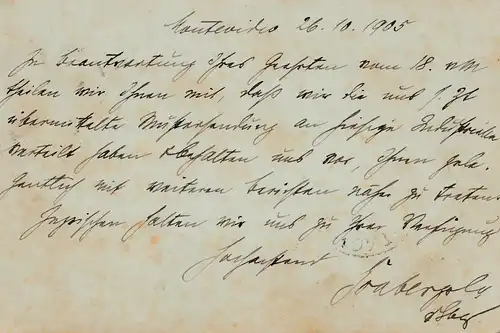 Montevideo 26. 10. 1905
In Beantwortung Ihres Geehrten vom 18. v/M
theilen wir Ihnen mit, daß wir die uns s. Zt
übermittelte Mustersendung an hiesige Industrielle
verteilt haben & behalten uns vor, Ihnen gele-
gentlich mit weiteren Berichten näher zu treten.
Inzwischen halten wir uns zu Ihrer Verfügung
Hochachtend